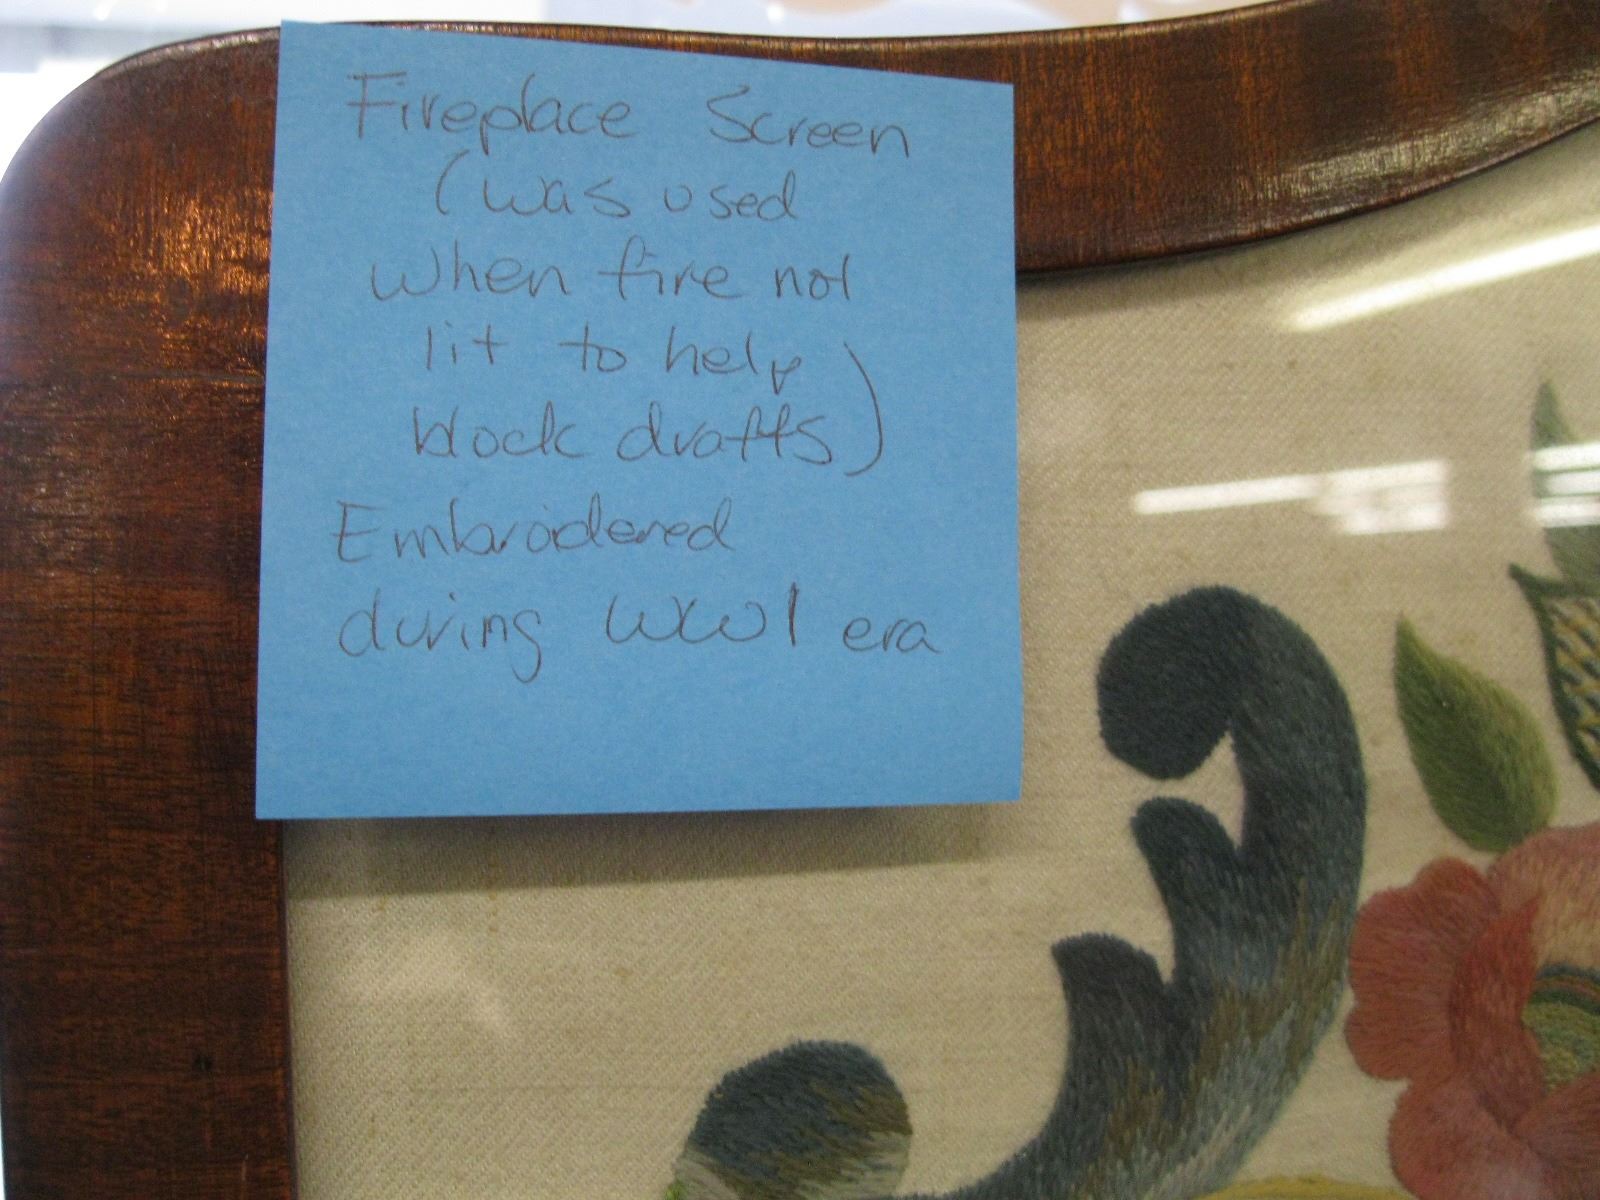 Fireplace Screen
(was used
when fire not
lit to help
block drafts)
Embroidered
during WW1 era